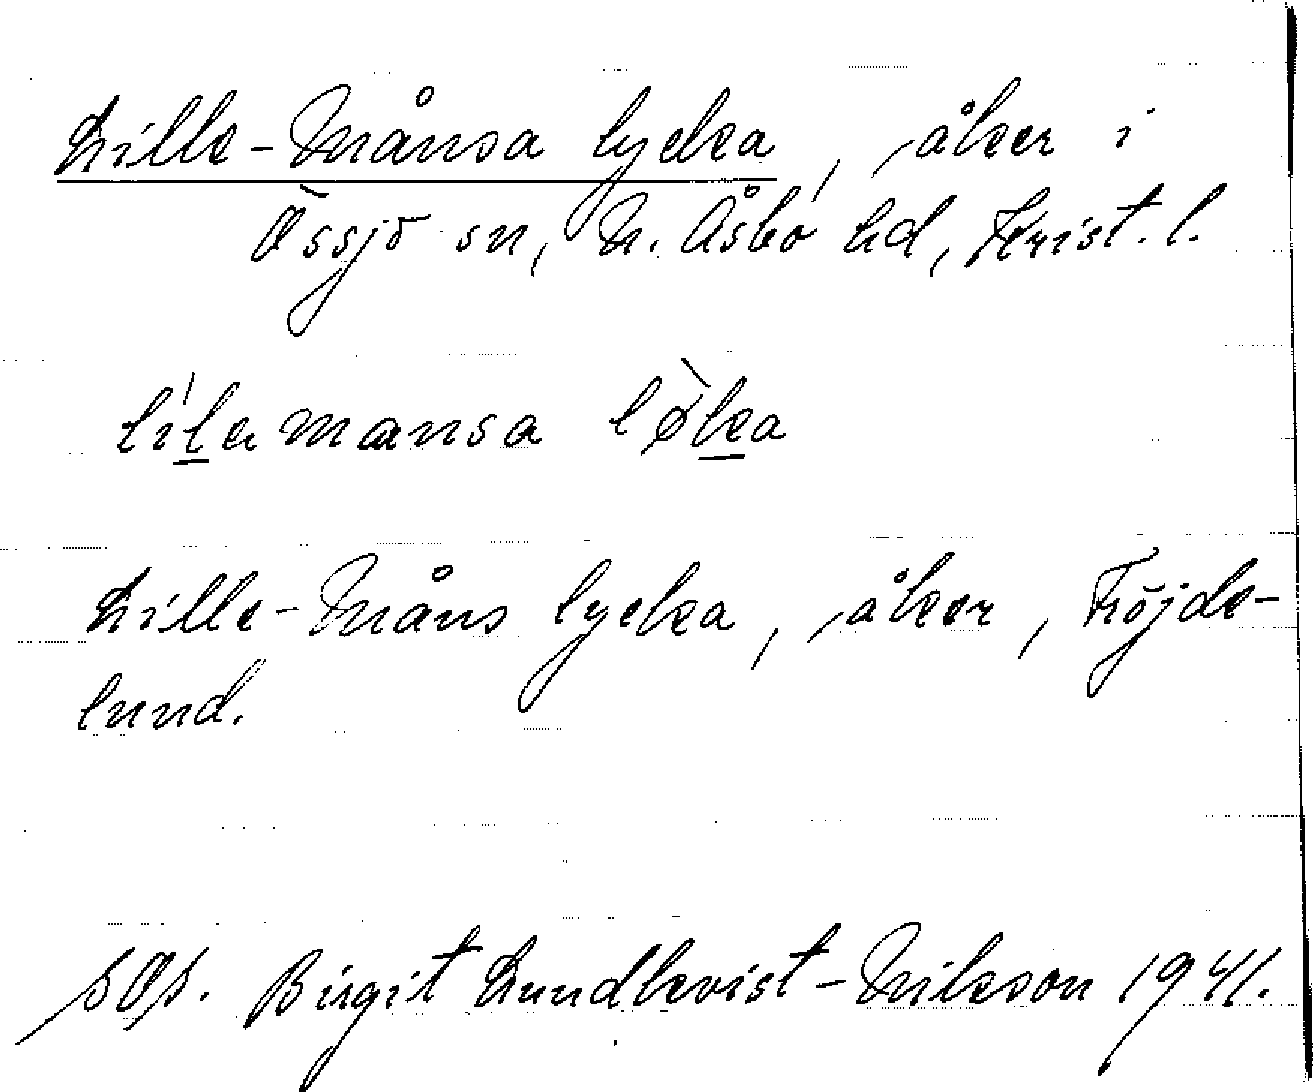 Lille-Månsa lycka, åker i
Össjö sn, N. Åsbo hd, Krist. l.
lílamansa lø̀ka
Lille-Måns lycka, åker, Fröjde-
lund.
Birgit Lundkvist-Nilsson 1941.